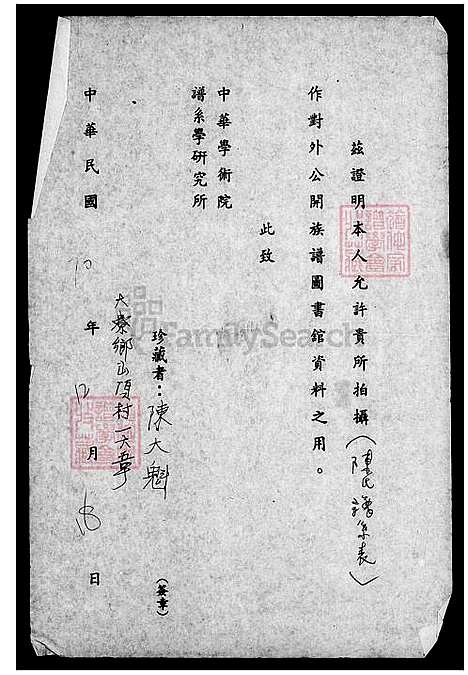 茲證明本人允許貴所拍攝(陳氏譜系表)
作對外公開族譜圖書館資料之用。
此致
中華學術院
譜系學研究所
珍藏者:陳大魁
(簽章)
大寮鄉山頂村一大章
中華民國70年12月18日
FamilySearch